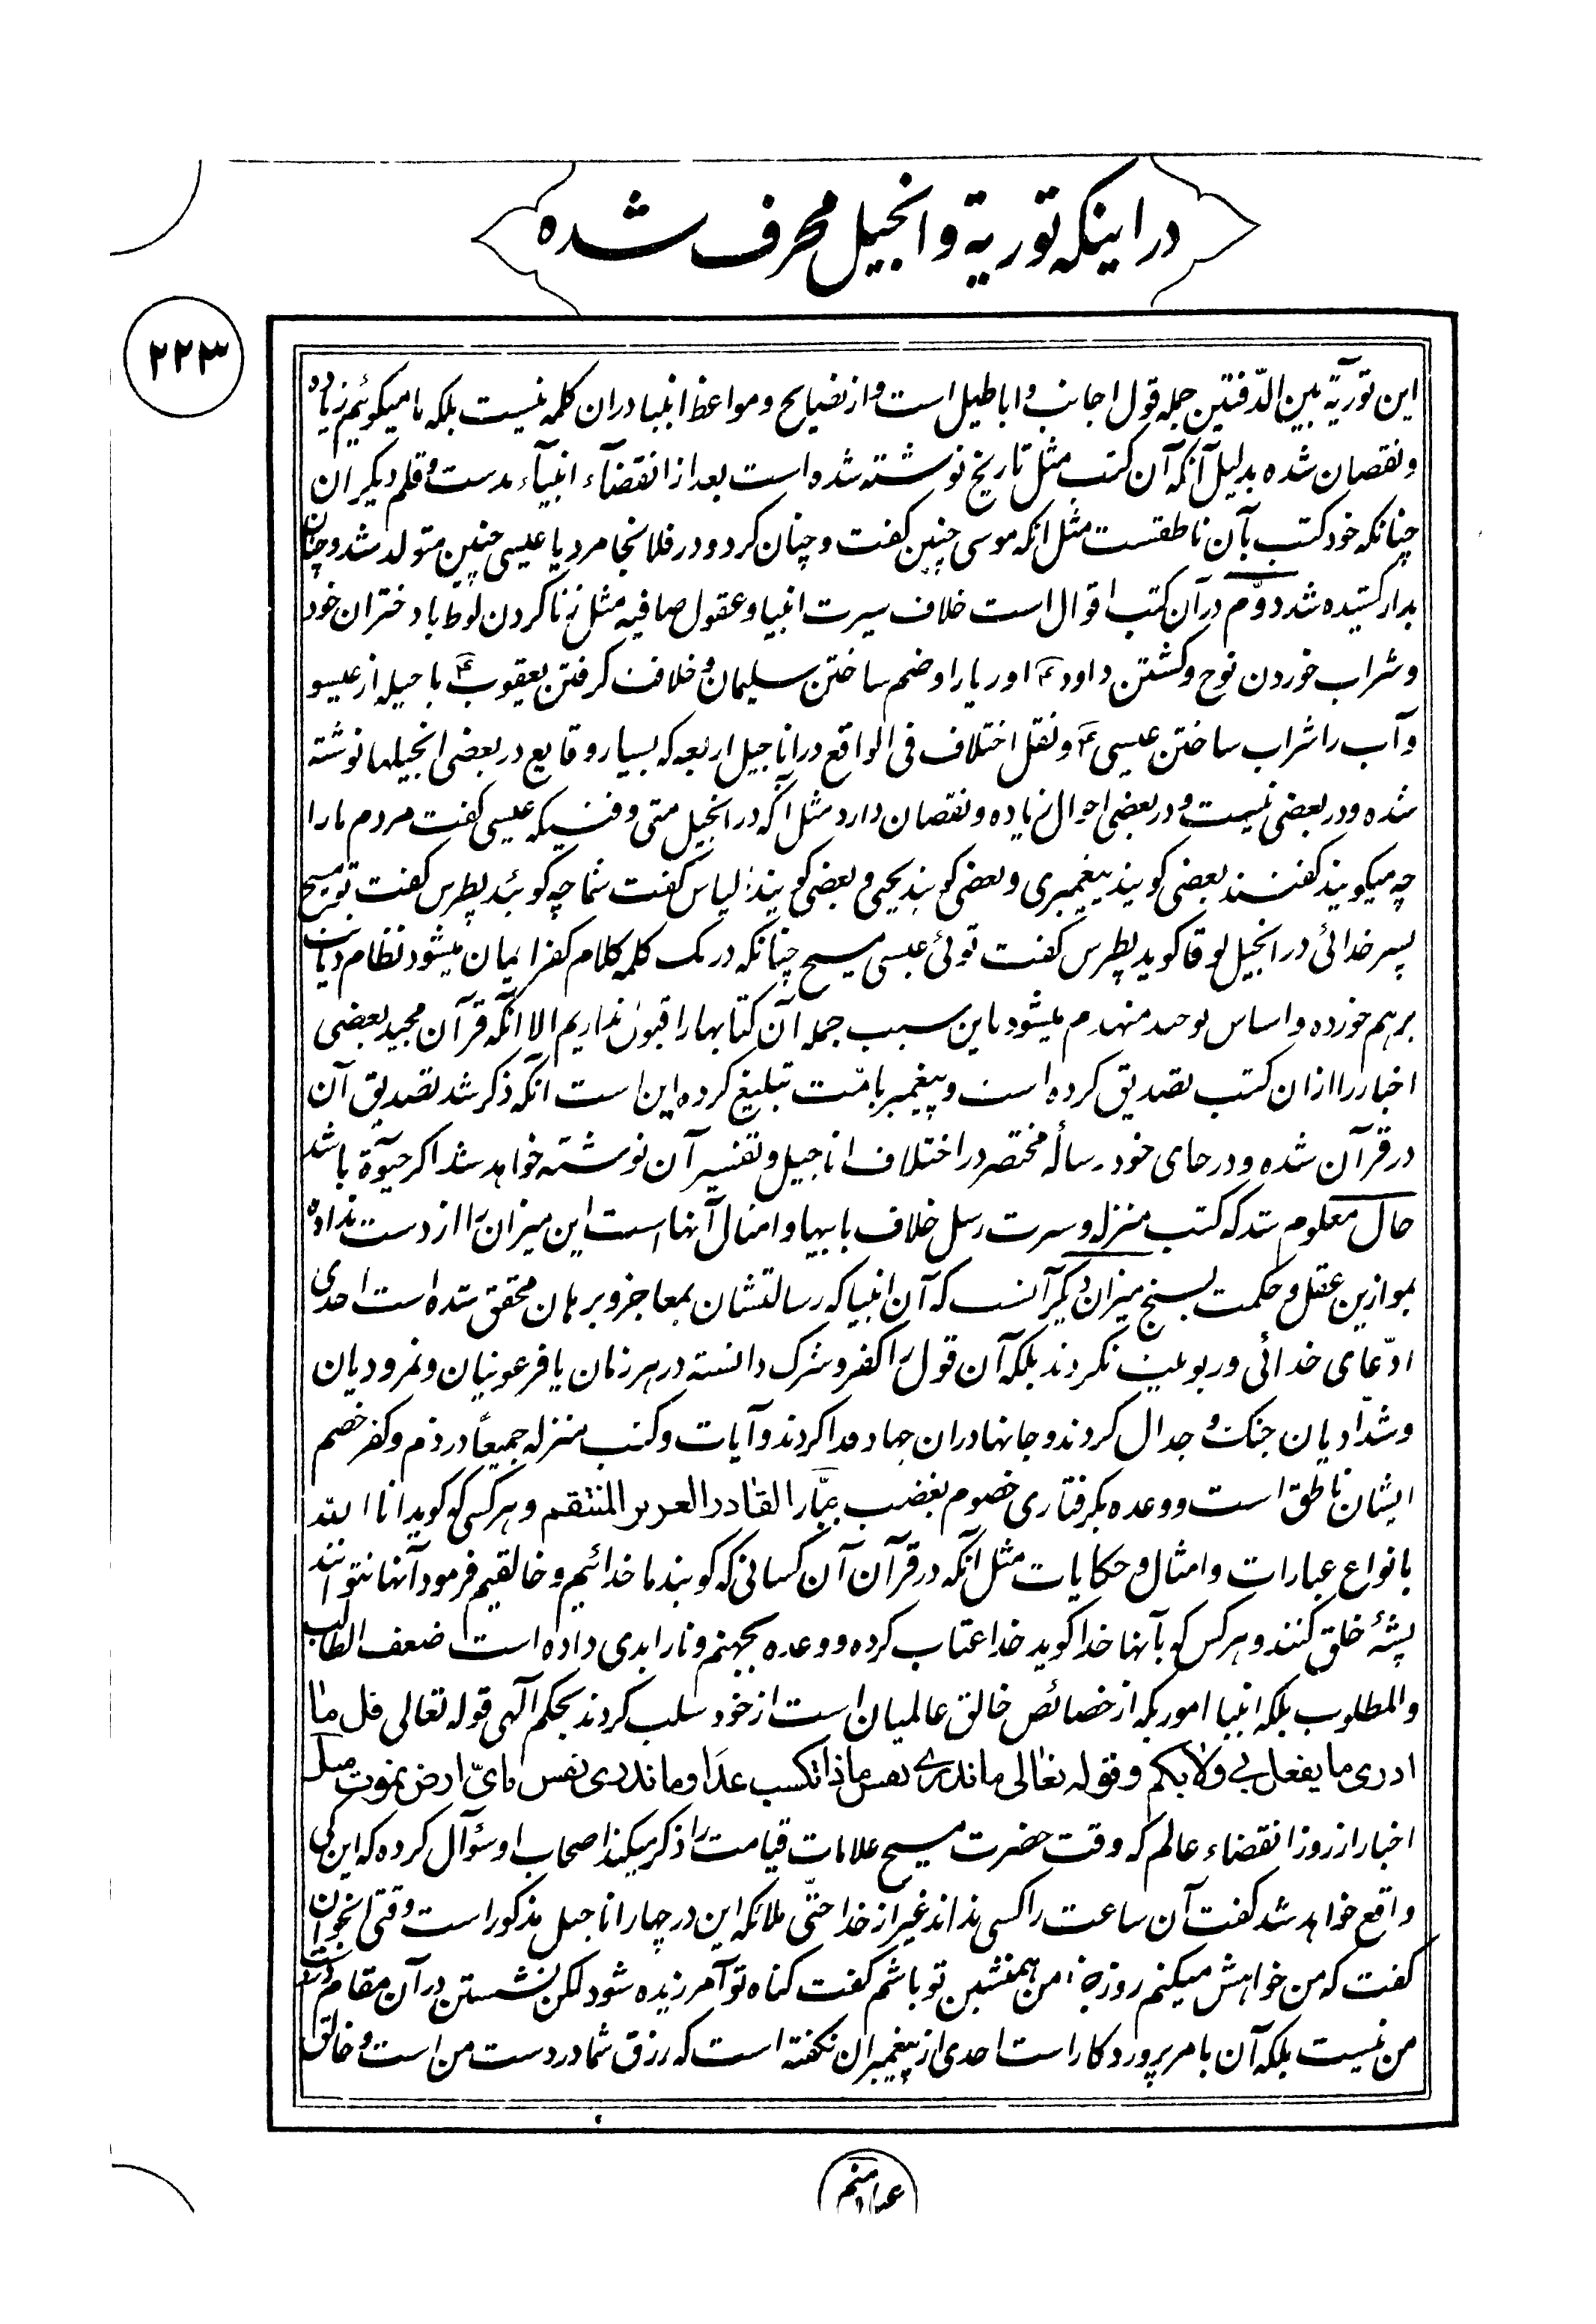 در اینکه توریة و انجیل محرف شده
۲۲۳
این توریة بین الدّفتین جمله قول اجانب و اباطیل است و از نصایح و مواعظ انبیا دران کلمه نیست بلکه ما میکوئیم زیاده
و نقصان شده بدلیل آنکه آن کتب مثل تاریخ نوشته شده است بعد از انقضآء انبیآء بدست و قلم دیکران
چنانکه خود کتب بآن ناطقست مثل انکه موسی چنین کفت و چنان کرد و در فلانجا مرد یا عیسی چنین متولد شد و چنان
بدار کشیده شد دوّم در آن کتب اقوال است خلاف سیرت انبیا و عقول صافیه مثل زنا کردن لوط با دختران خود
و شراب خوردن نوح و کشتن داود ع اوریا را و صنم ساختن سلیمان و خلافت کرفتن یعقوب ع با حیله از عیسو
و آب را شراب ساختن عیسی ع و نقل اختلاف فی الواقع در اناجیل اربعه که بسیار وقایع در بعضی انجیلها نوشته
شده و در بعضی نیست و در بعضی احوال زیاده و نقصان دارد مثل آنکه در انجیل متی وقتیکه عیسی کفت مردم ما را
چه میکویند کفتند بعضی کویند پیغمبری و بعضی کویند یحیی و بعضی کویند الیاس کفت شما چه کوئید پطرس کفت تو مسیح
پسر خدائی در انجیل لوقا کوید پطرس کفت توئی عیسی مسیح چنانکه در یک کلمه کلام کفر ایمان میشود نظام دیانت
برهم خورده و اساس توحید منهدم میشود باین سبب جمله آن کتابها را قبول نداریم الا آنکه قرآن مجید بعضی
اخبار را ازان کتب تصدیق کرده است و پیغمبر بامّت تبلیغ کرده این است آنکه ذکر شد تصدیق آن
در قرآن شده و در جای خود رسالۀ مختصر در اختلاف اناجیل و تفسیر آن نوشته خواهد شد اکر حیوة باشد
حال معلوم شد که کتب منزله و سیرت رسل خلاف بابیها و امثال آنها است این میزان را از دست نداده
بموازین عقل و حکمت بسنج میزان دیکر آنست که آن انبیا که رسالتشان بمعاجز و برهان محقق شده است احدی
ادّعای خدائی و ربوبیت نکردند بلکه آن قول را کفر و شرک دانسته در هر زمان با فرعونیان و نمرودیان
و شدّادیان جنک و جدال کردند و جانها دران جهاد فدا کردند و آیات و کتب منزله جمیعاً در ذم و کفر خصم
ایشان ناطق است و وعده بکرفتاری خصوم بغضب جبّار القادر العزیز المنتقم و هر کسی کو کوید انا الله
بانواع عبارات و امثال و حکایات مثل آنکه در قرآن آن کسانی که کویند ما خدائیم و خالقیم فرمود آنها نتوانند
پشۀ خلق کنند و هر کس کو بآنها خدا کوید خدا عتاب کرده و وعده بجهنم و نار ابدی داده است ضعف الطالب
والمطلوب بلکه انبیا اموریکه از خصائص خالق عالمیان است از خود سلب کردند بحکم آلهی قوله تعالی قل ما
ادری ما یفعل بی ولا بکم و قوله تعالی ما تدری نفس ماذا تکسب غدا و ما تدری نفس بایّ ارض تموت مثل
اخبار از روز انقضاء عالم که وقت حضرت مسیح علامات قیامت را ذکر میکند اصحاب او سؤال کرده که این کی
واقع خواهد شد کفت آن ساعت را کسی نداند غیر از خدا حتّی ملائکه این در چهار اناجیل مذکور است وقتی
کفت که من خواهش میکنم روز من همنشین تو باشم کفت کناه تو آمرزیده شود لکن نشستن در آن مقام
من نیست بلکه آن بامر پروردکار است احدی از پیغمبران نکفته است که رزق شما در دست من است و خالق